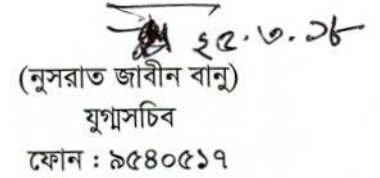 ২৫.৩.১৮
(নুসরাত জাবীন বানু)
যুগ্মসচিব
ফোন : ৯৫৪০৫১৭